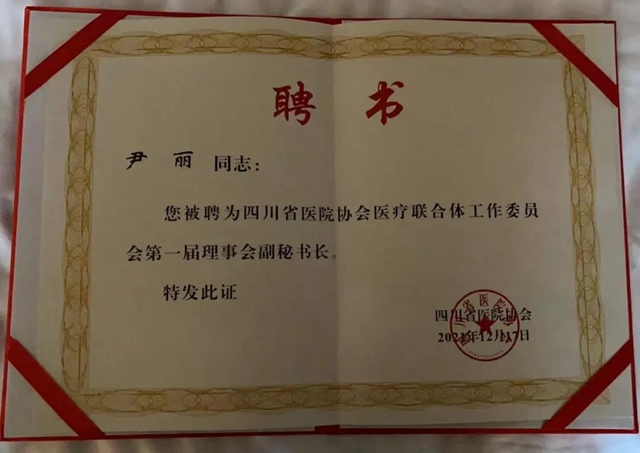 聘书
尹丽 同志：
您被聘为四川省医院协会医疗联合体工作委员
会第一届理事会副秘书长。
特发此证
四川省医院协会
2021年12月17日